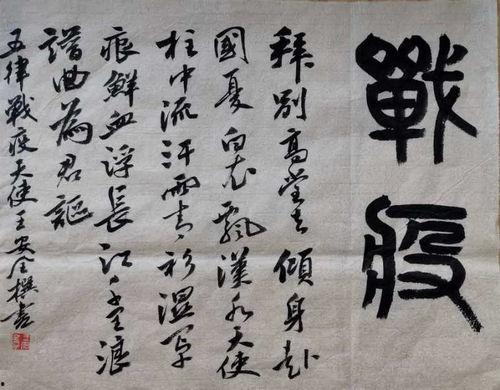 戰疫
拜別高堂去傾身赴
國憂白衣飄漢水天使
柱中流汗雨青衫濕罩
痕鮮血浮長江千里浪
譜曲為君謳
五律戰疫天使王安全撰書